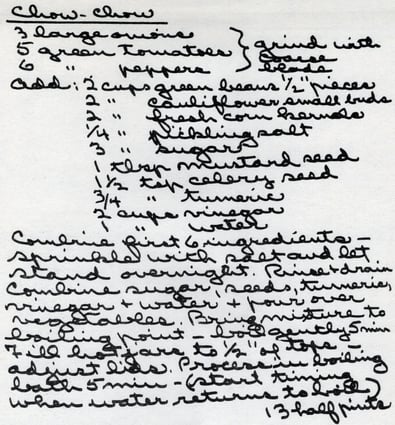 Chow-Chow
3 large onions
5 green tomatoes } grind with
6 " peppers coarse blade
Add: 2 cups green beans 1/2" pieces
2 " cauliflower small buds
2 " fresh corn kernels
1/4 " pickling salt
3 " sugar
1 tbsp mustard seed
1 1/2 tsp celery seed
3/4 " tumeric
2 cups vinegar
1 " water
Combine first 6 ingredients -
sprinkle with salt and let
stand overnight. Rinse & drain
Combine sugar, seeds, tumeric,
vinegar & water & pour over
vegetables. Bring mixture to
boiling point - boil gently 5 min
Fill hot jars to 1/2" of tops -
adjust lids. Process in boiling
bath 5 min - (start timing
when water returns to boil)
13 half pints